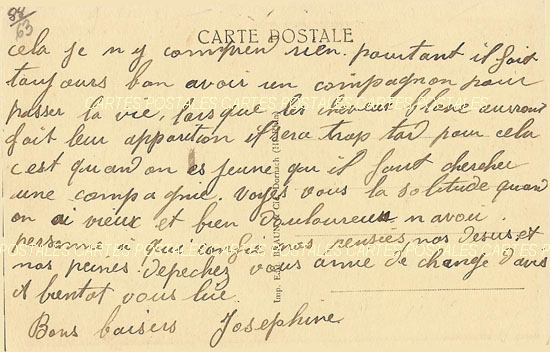 88
63
CARTE POSTALE
cela je n y comprend rien. pourtant il fait
toujours bon avoir un compagnon pour
passer la vie, lorsque les cheveux blanc auront
fait leur apparition il sera trop tard pour cela
c est quand on es jeune qu il faut chercher
une compagnie. Voyez vous la solitude quand
on ai vieux et bien douloureux n avoir
personne a qui confier nos pensées nos desirs et
nos peines. depechez vous amie de change d avis
A bientot vous lire.
Bons baisers Josephine
Imp. BRAUN & Cie Dornach
CARTES POSTALES